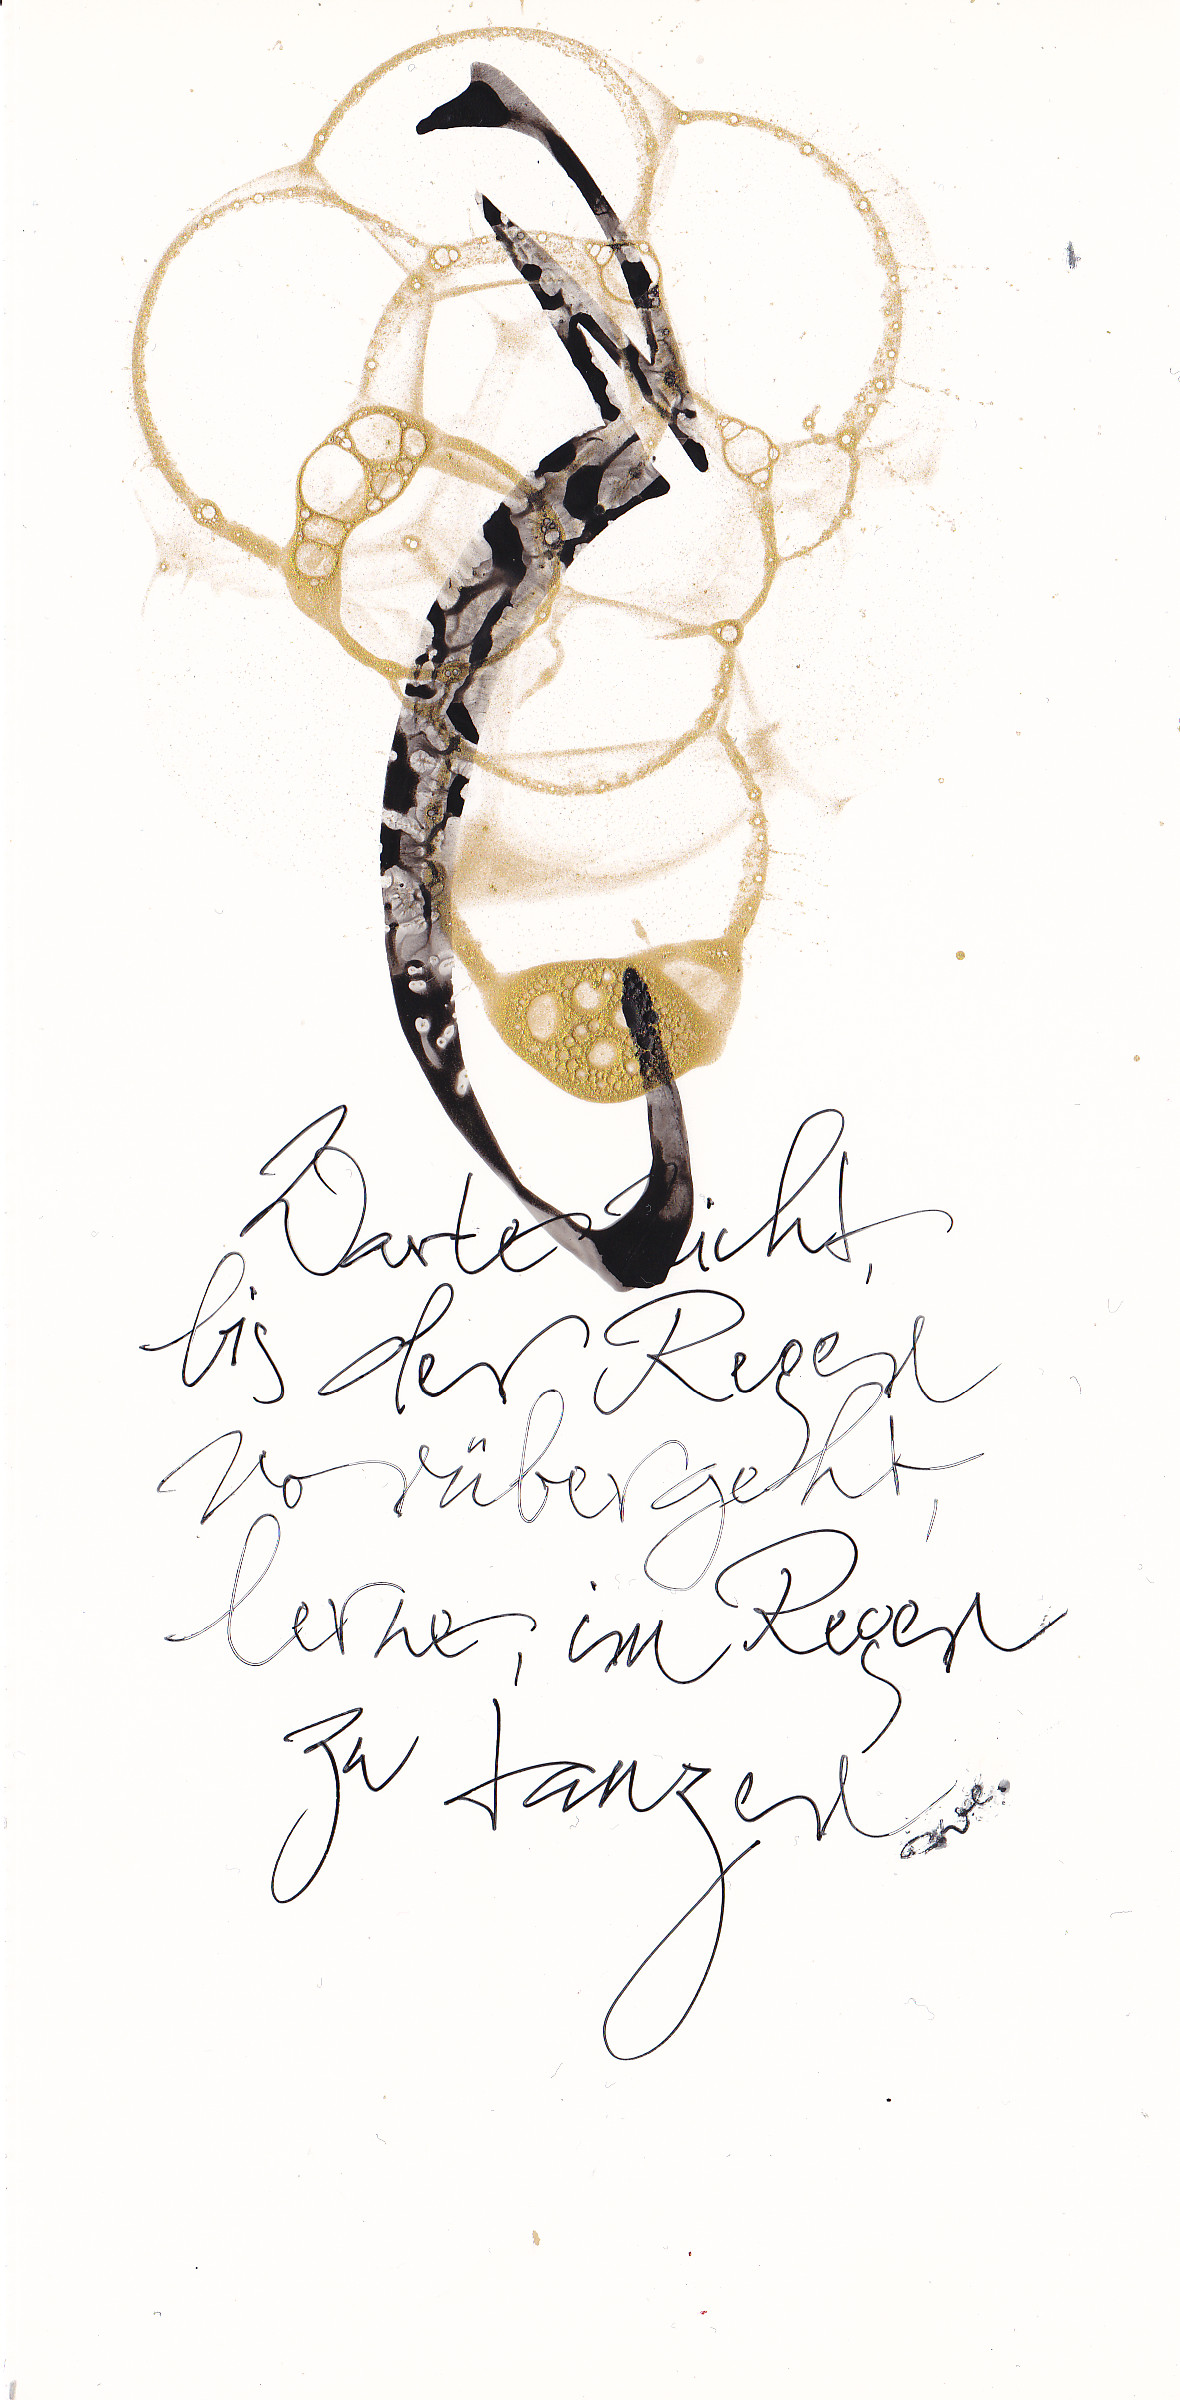 Warte nicht,
bis der Regen
vorübergeht,
lerne, im Regen
zu tanzen